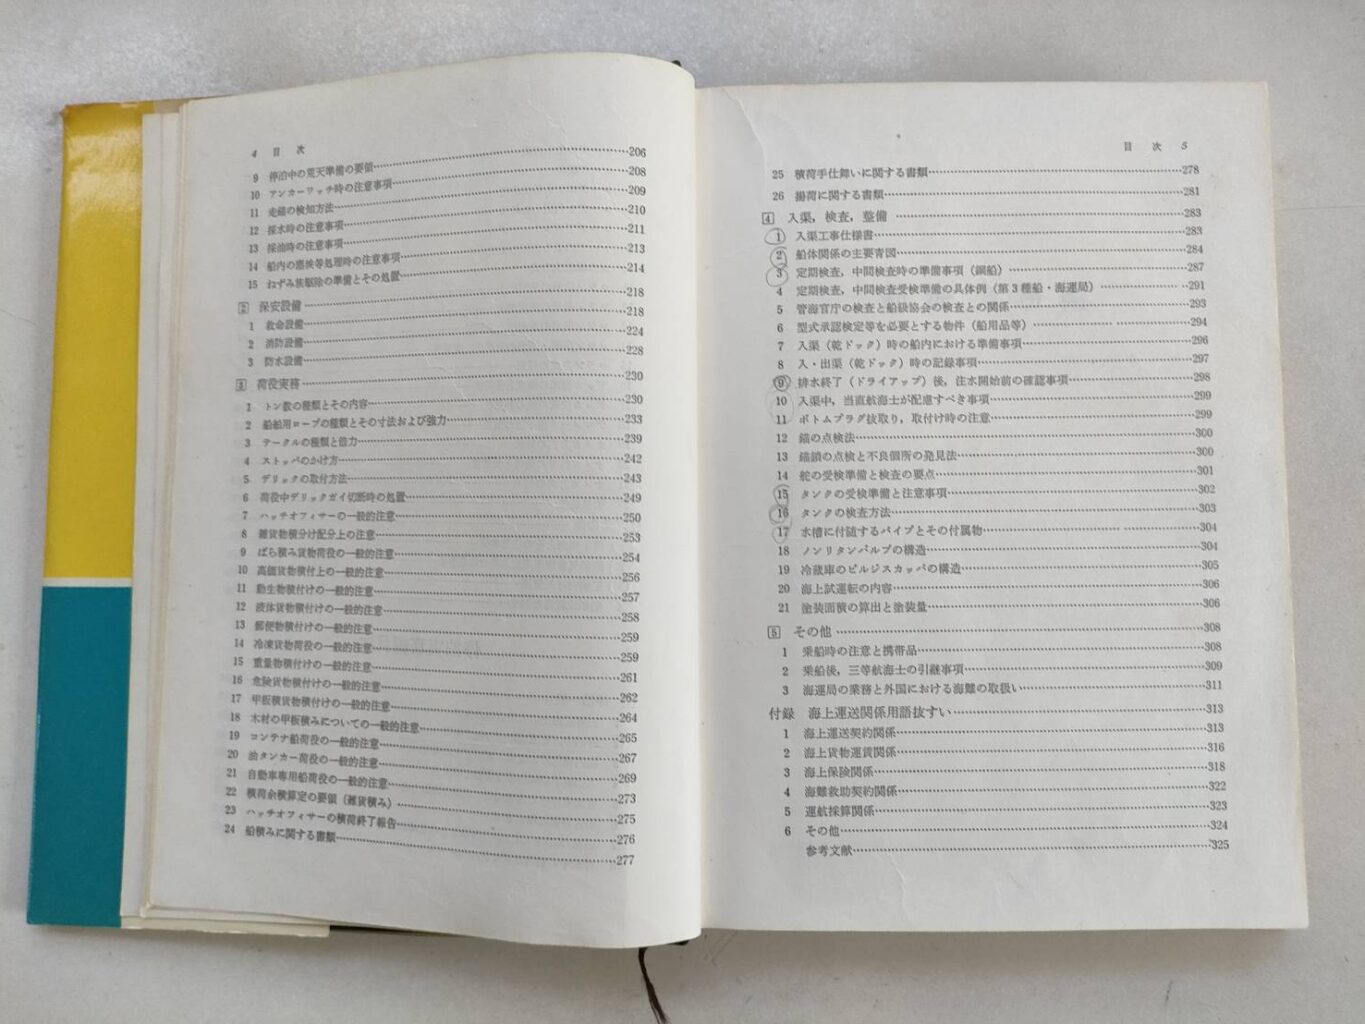 4 目 次
9 停泊中の荒天準備の要領……206
10 アンカーワッチ時の注意事項……208
11 走錨の検知方法……209
12 採水時の注意事項……210
13 採油時の注意事項……211
14 船内の燻蒸等処理時の注意事項……213
15 ねずみ族駆除の準備とその処置……214
2 保安設備……218
1 救命設備……218
2 消防設備……224
3 防水設備……228
3 荷役実務……230
1 トン数の種類とその内容……230
2 船舶用ロープの種類とその寸法および強力……233
3 テークルの種類と倍力……239
4 ストッパのかけ方……242
5 デリックの取付方法……243
6 荷役中デリックガイ切断時の処置……249
7 ハッチオフィサーの一般的注意……250
8 雑貨物積分け配分上の注意……253
9 ばら積み貨物荷役の一般的注意……254
10 高価貨物積付上の一般的注意……256
11 動生物積付けの一般的注意……257
12 液体貨物積付けの一般的注意……258
13 郵便物積付けの一般的注意……259
14 冷凍貨物荷役の一般的注意……259
15 重量物積付けの一般的注意……261
16 危険貨物積付けの一般的注意……262
17 甲板積貨物積付けの一般的注意……264
18 木材の甲板積みについての一般的注意……265
19 コンテナ船荷役の一般的注意……267
20 油タンカー荷役の一般的注意……269
21 自動車専用船荷役の一般的注意……273
22 積荷余積算定の要領（雑貨積み）……275
23 ハッチオフィサーの積荷終了報告……276
24 船積みに関する書類……277
目 次 5
25 積荷手仕舞いに関する書類……278
26 揚荷に関する書類……281
4 入渠，検査，整備……283
1 入渠工事仕様書……283
2 船体関係の主要青図……284
3 定期検査，中間検査時の準備事項（鋼船）……287
4 定期検査，中間検査受検準備の具体例（第3種船・海運局）……291
5 管海官庁の検査と船級協会の検査との関係……293
6 型式承認検定等を必要とする物件（船用品等）……294
7 入渠（乾ドック）時の船内における準備事項……296
8 入・出渠（乾ドック）時の記録事項……297
9 排水終了（ドライアップ）後，注水開始前の確認事項……298
10 入渠中，当直航海士が配慮すべき事項……299
11 ボトムプラグ抜取り，取付け時の注意……299
12 錨の点検法……300
13 錨鎖の点検と不良個所の発見法……300
14 舵の受検準備と検査の要点……301
15 タンクの受検準備と注意事項……302
16 タンクの検査方法……303
17 水槽に付随するパイプとその付属物……304
18 ノンリタンバルブの構造……304
19 冷蔵庫のビルジスカッパの構造……305
20 海上試運転の内容……306
21 塗装面積の算出と塗装量……306
5 その他……308
1 乗船時の注意と携帯品……308
2 乗船後，三等航海士の引継事項……309
3 海運局の業務と外国における海難の取扱い……311
付録 海上運送関係用語抜すい……313
1 海上運送契約関係……313
2 海上貨物運賃関係……316
3 海上保険関係……318
4 海難救助契約関係……322
5 運航採算関係……323
6 その他……324
参考文献……325